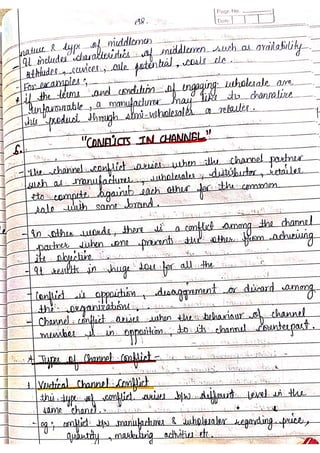 Page No.
Date
nature & type of middlemen
It includes characteristics of middlemen such as availability
attitudes, services, sale potential, costs etc.
For examples:
if the terms and condition of engaging wholesale are
unfavourable, a manufacturer may like to channelize
his product through semi-wholesalers or retailer.
5. "CONFLICTS IN CHANNEL"
- The channel conflict arises when the channel partner
such as manufacturer, wholesaler, distributor, retailer
to compete against each other for the common
sale with same brand.
- In other words, there is a conflict among the channel
partner when one prevents the other from achieving
its objective.
- It result in huge loss for all the
Conflict is opposition, disaggrement or discard among
the organizations.
- Channel conflict arises when the behaviour of channel
member is in opposition to its channel counterpart.
A Types of Channel Conflict -
1 Vertical Channel Conflict
this type of conflict arises b/w different level in the
same chanel.
- eg: conflict b/w manufacturer & wholesaler regarding price,
quantity, marketing activities etc.